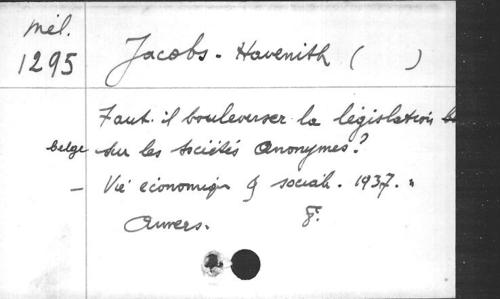 Mél.
1295
Jacobs - Havenith ( )
Faut-il bouleverser la législation
belge sur les sociétés anonymes?
— Vie économique & sociale. 1937.
Anvers. 8°.